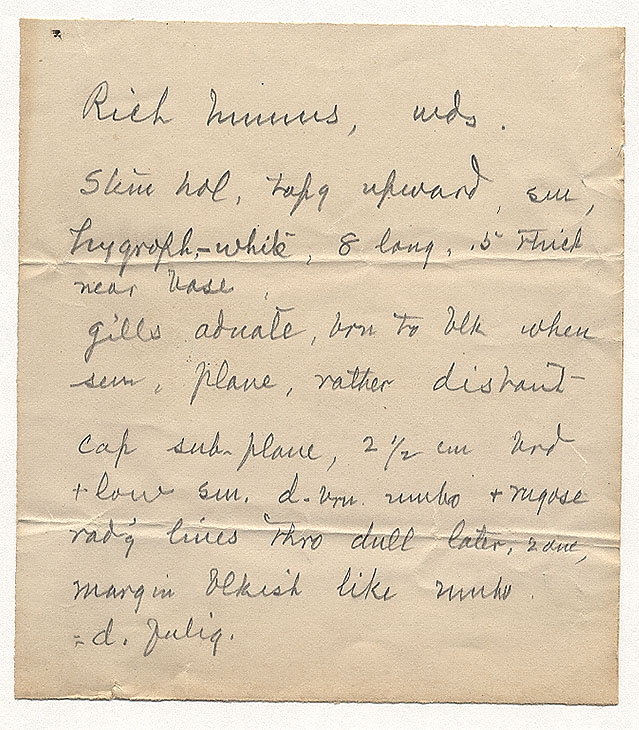 Rich humus, wds.
Stem hol, tap'g upward, sm,
hygroph,-white, 8 long, .5 thick
near base,
gills adnate, brn to blk when
sen, plane, rather distant
cap sub-plane, 2 1/2 cm brd
+ low sm. d. brn. umbo + rugose
rad'g lines thro dull later, zone,
margin blkish like umbo.
= d. fulig.